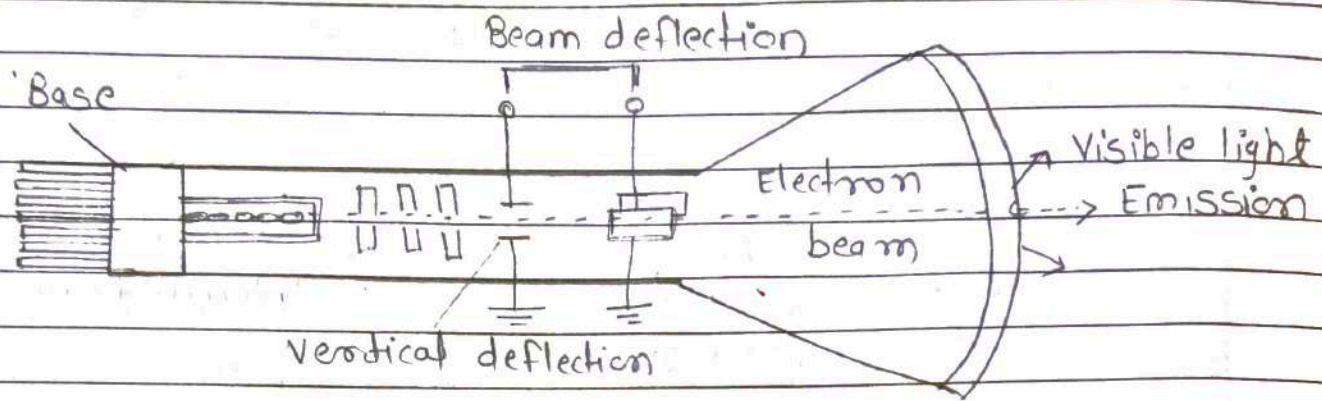 Beam deflection
Base
Visible light
Electron
Emission
beam
Vertical deflection